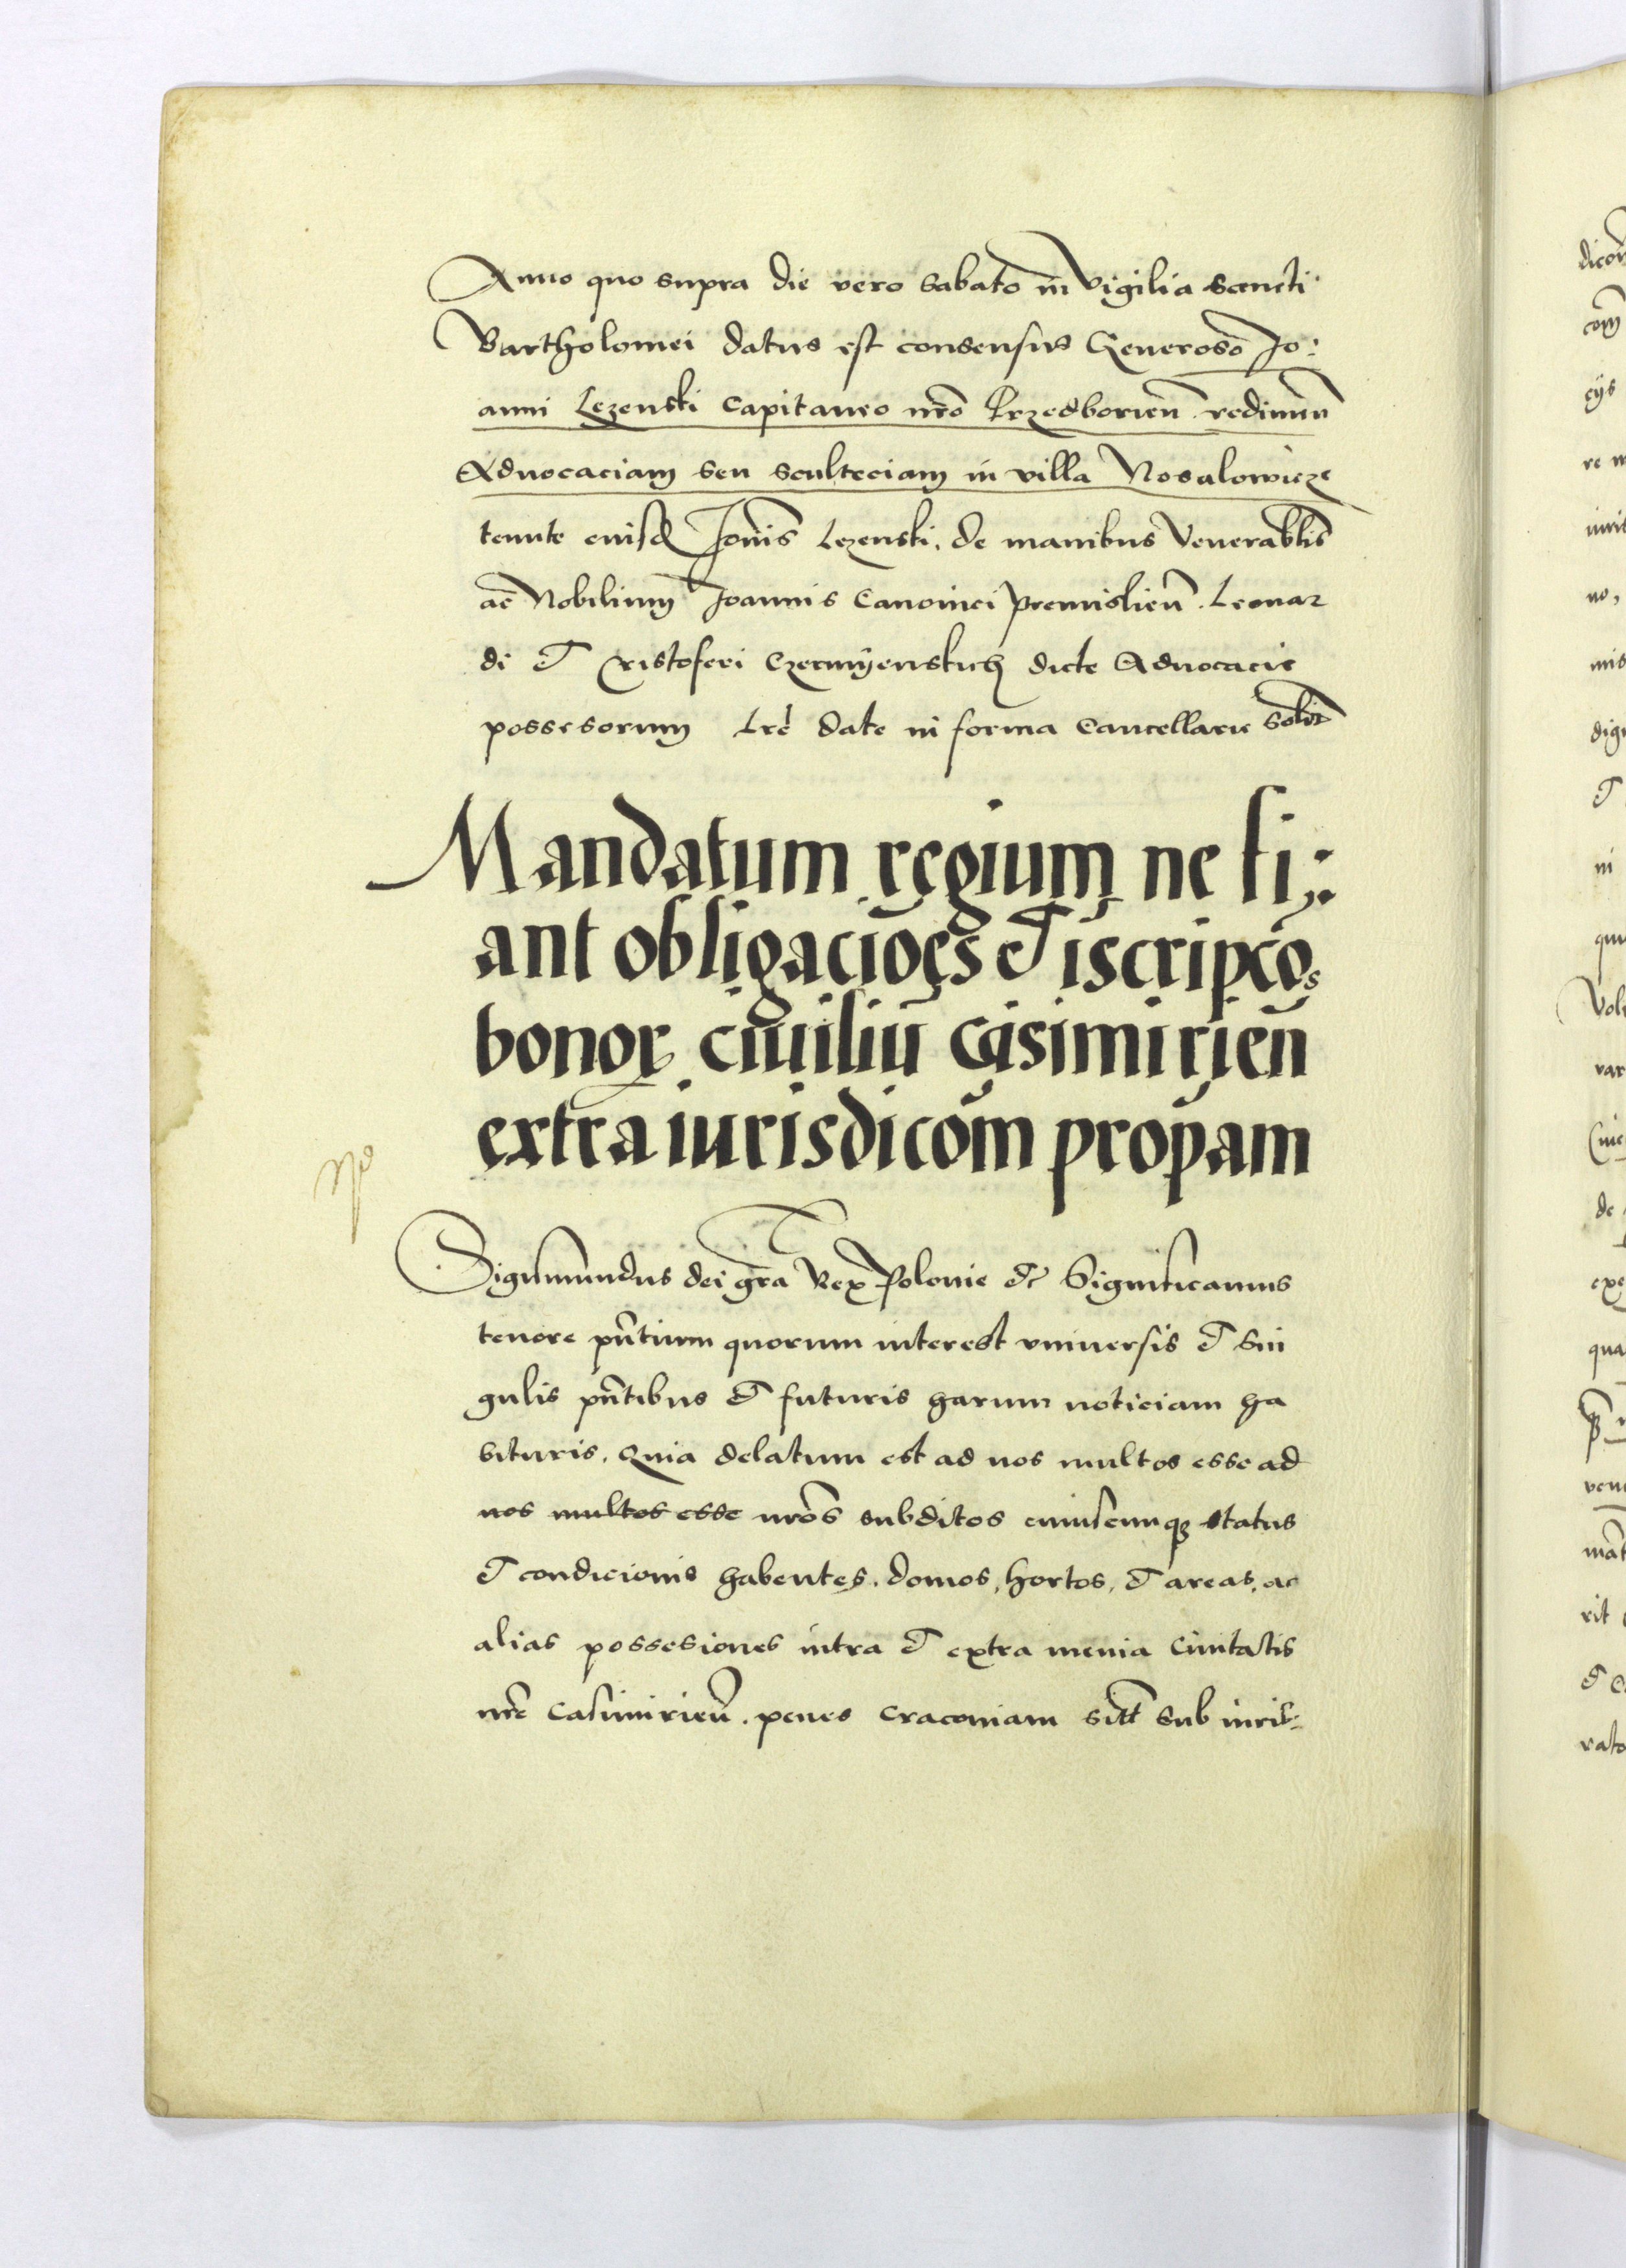 Anno quo supra die vero sabato in vigilia sancti
Bartholomei datus est consensus Generoso Jo:
anni Lezenski Capitaneo nr̃o Przedborien̄. redimen̄
Aduocaciam seu sculteciam in villa Nosalowicze
tenute eiusd Joñis Lezenski. de manibus Venerabłis
ac Nobilium Joannis Canonici Premislien̄. Leonar
di et Cristoferi Czermÿenskich dicte Aduocacie
possesorum Lr̃e date in forma Cancellarie solit̃
Mandatum regium ne fi:
ant obligacioēs et iscripcōs
bonoꝝ ciuiliū Casimirien̄
extra iurisdicōm propam
Sigismundus dei gr̃a Rex Polonie etc̃ Significamus
tenore pñtium quorum interest vniuersis et sin
gulis pñtibus et futuris harum noticiam ha
bituris. Quia delatum est ad nos multos esse ad
nos multos esse nr̃os subditos cuiuscunqꝫ status
et condicionis habentes. domos, hortos, et areas, ac
alias possesiones intra et extra menia Ciuitatis
nr̃e Casimirien̄. penes Cracouiam sitt̃ sub iuris: